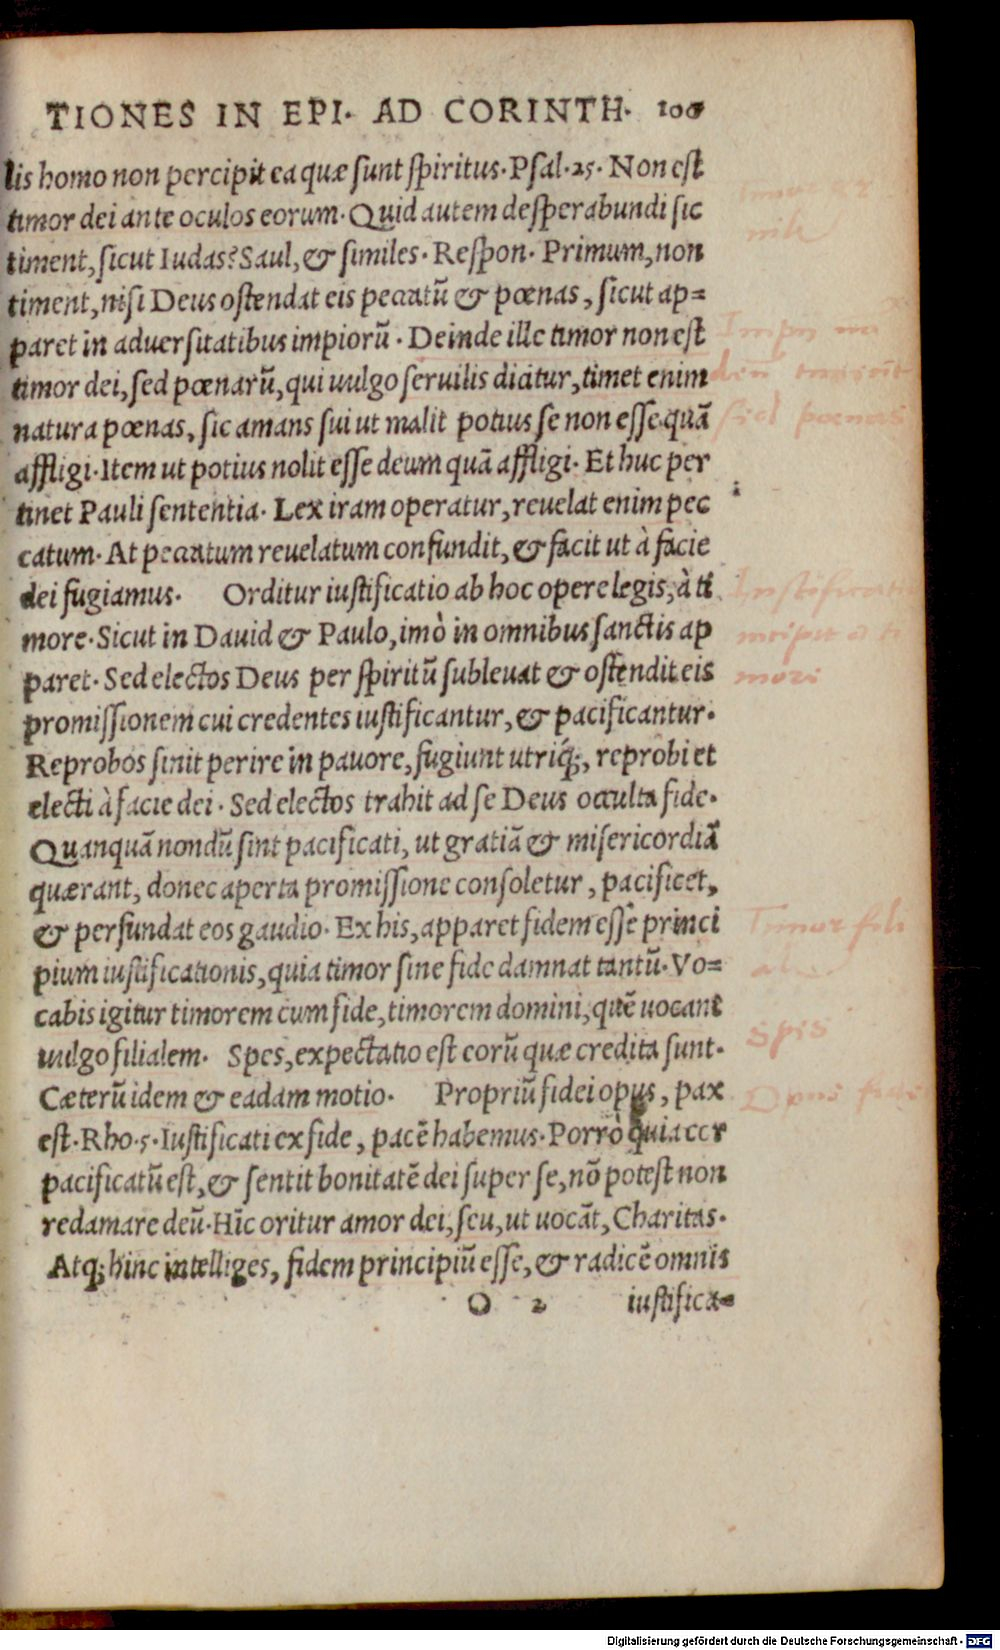 TIONES IN EPI. AD CORINTH. 100
lis homo non percipit ea quæ sunt spiritus. Psal. 25. Non est
timor dei ante oculos eorum. Quid autem desperabundi sic
timent, sicut Iudas? Saul, & similes. Respon. Primum, non
timent, nisi Deus ostendat eis peccatū & pœnas, sicut ap=
paret in aduersitatibus impiorū. Deinde ille timor non est
timor dei, sed pœnarū, qui uulgo seruilis dicitur, timet enim
natura pœnas, sic amans sui ut malit potius se non esse quā
affligi. Item ut potius nolit esse deum quā affligi. Et huc per
tinet Pauli sententia. Lex iram operatur, reuelat enim pec
catum. At peccatum reuelatum confundit, & facit ut à facie
dei fugiamus. Orditur iustificatio ab hoc opere legis, à ti
more. Sicut in Dauid & Paulo, imò in omnibus sanctis ap
paret. Sed electos Deus per spiritū subleuat & ostendit eis
promissionem cui credentes iustificantur, & pacificantur.
Reprobos sinit perire in pauore, fugiunt utriq;, reprobi et
electi à facie dei. Sed electos trahit ad se Deus occulta fide.
Quanquā nondū sint pacificati, ut gratiā & misericordiā
quærant, donec aperta promissione consoletur, pacificet,
& perfundat eos gaudio. Ex his, apparet fidem esse princi
pium iustificationis, quia timor sine fide damnat tantū. Vo=
cabis igitur timorem cum fide, timorem domini, quē uocant
uulgo filialem. Spes, expectatio est eorū quæ credita sunt.
Cæterū idem & eadam motio. Propriū fidei opus, pax
est. Rho. 5. Iustificati ex fide, pacē habemus. Porrò quia cor
pacificatū est, & sentit bonitatē dei super se, nō potest non
redamare deū. Hīc oritur amor dei, seu, ut uocāt, Charitas.
Atq; hinc intelliges, fidem principiū esse, & radicē omnis
O 2 iustifica=
Iustificatio
incipit a ti
mori
Timor fili
Spis
Opus fidei